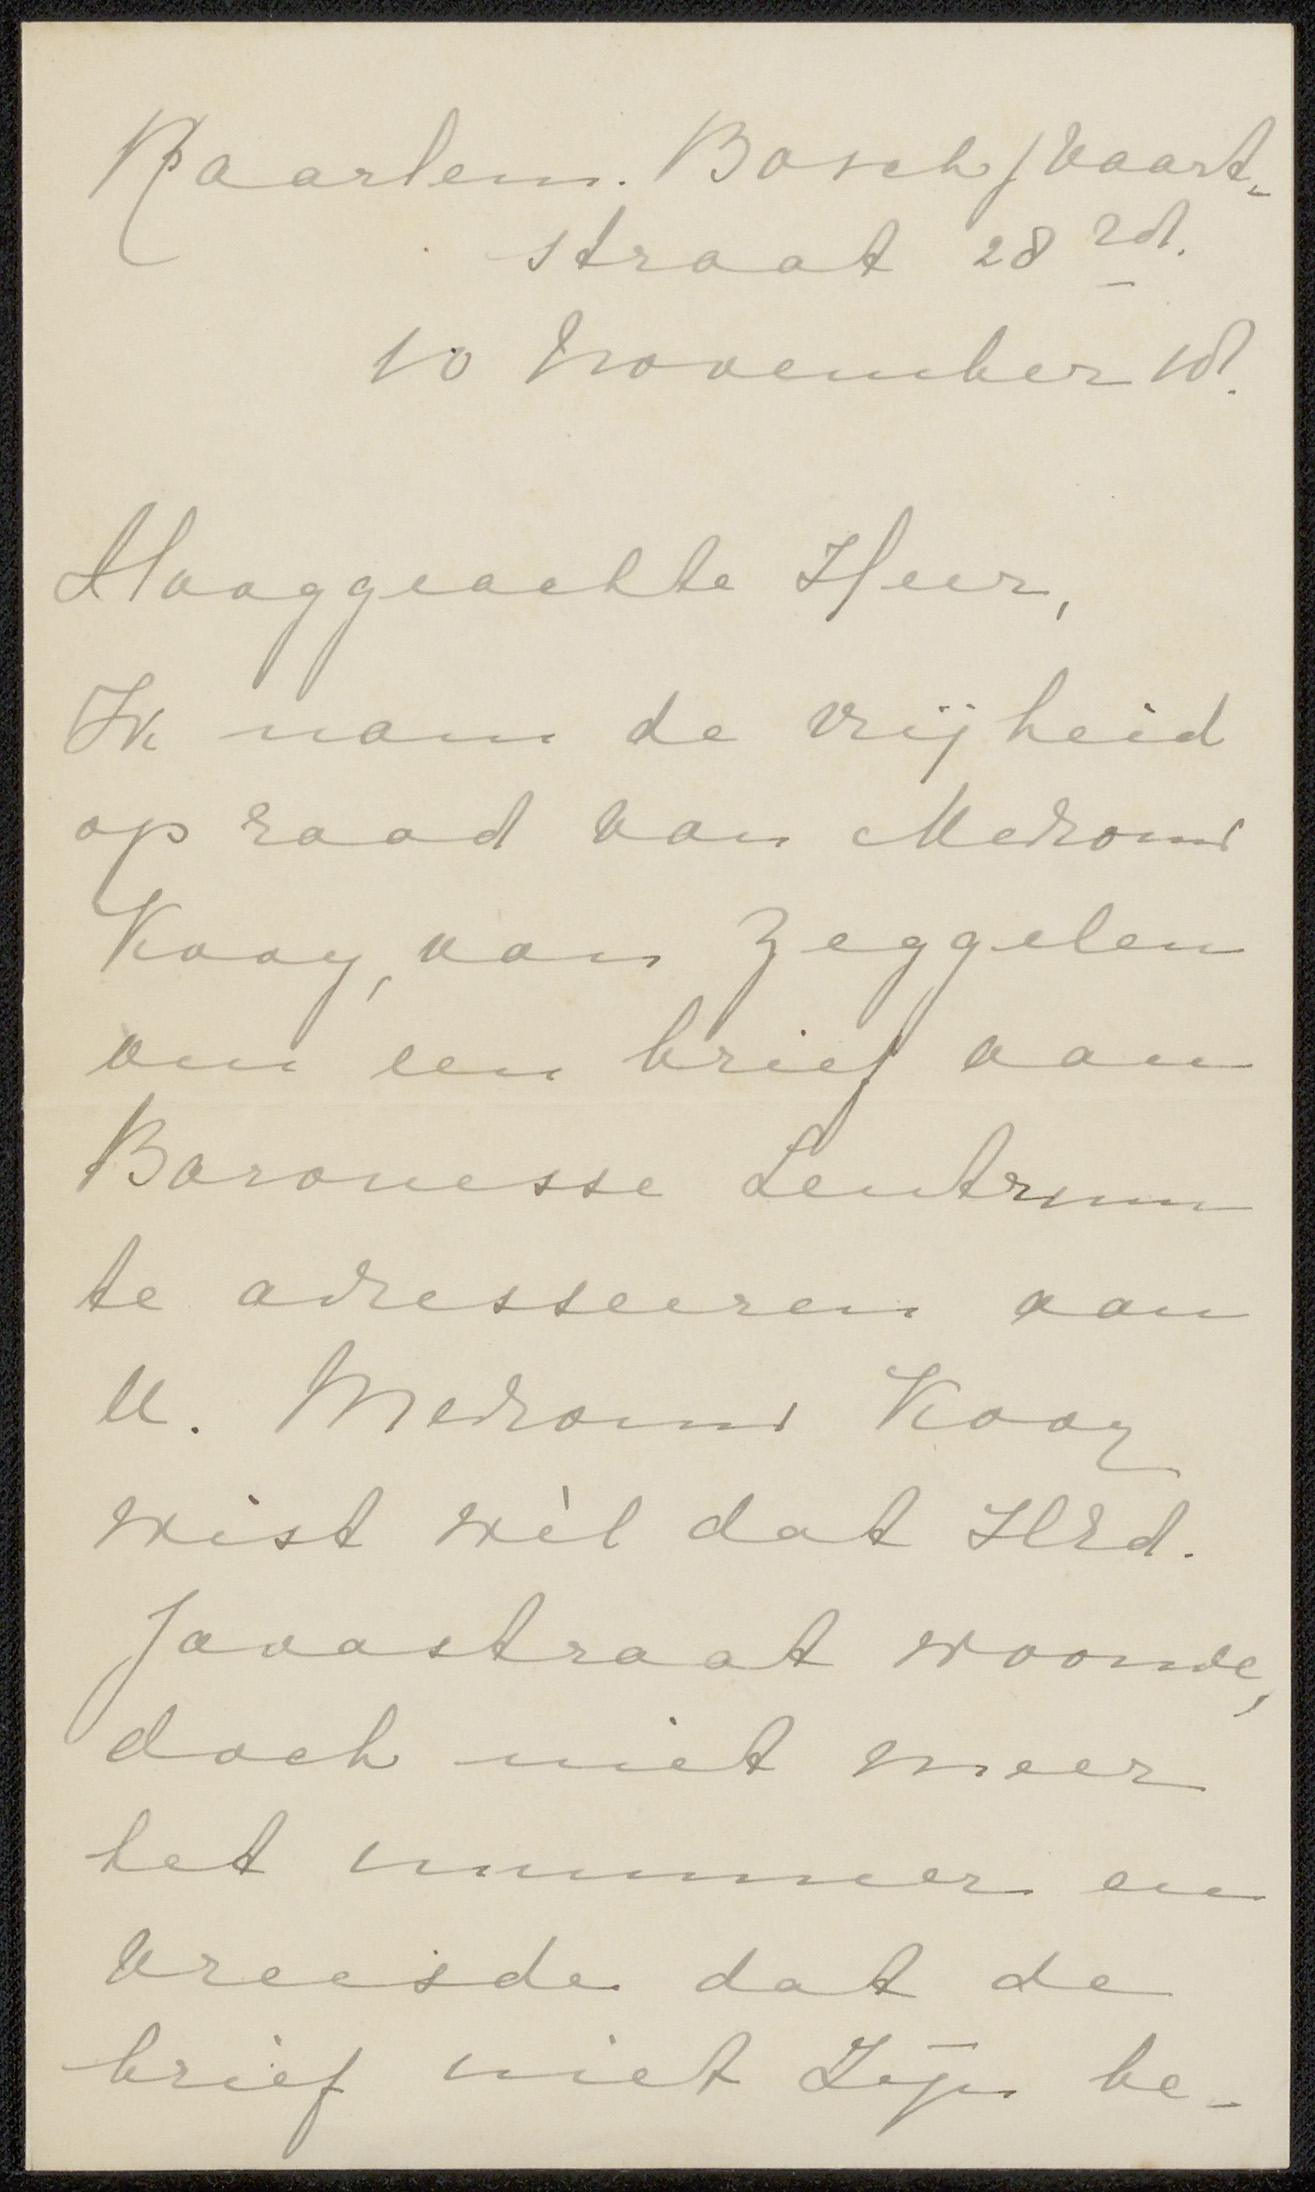 Haarlem. Bosch/Vaart-
straat 28 rd.
10 November 18.
Hooggeachte Heer,
Ik nam de vrijheid
op raad van Mevrouw
Kooy, van Zeggelen
om een brief van
Baronesse Lentrum
te adresseeren aan
U. Mevrouw Kooy
wist wèl dat HEd.
Javastraat woonde,
doch niet meer
het nummer en
vreesde dat de
brief niet Zijn be-